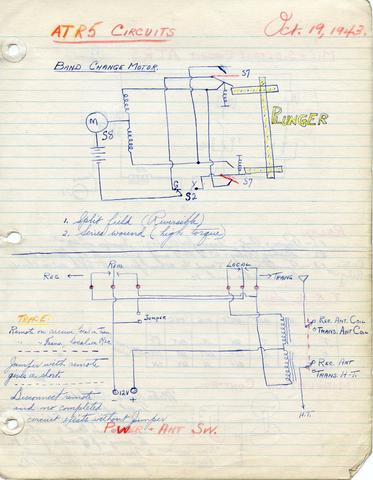 ATR5 CIRCUITS Oct. 19, 1943.
BAND CHANGE MOTOR.
S7
M
S8
PLUNGER
S7
G Y
S2
1. Split field (Reversible)
2. Series wound (high torque)
REM. LOCAL
REC TRANS.
TRACE:
Jumper
REC. ANT. COIL
TRANS. ANT COIL
Remote on receive Local on Tran.
" " Trans. Local on Rec.
Jumper with remote
gives a short.
REC. ANT
TRANS. H.T.
Disconnect remote
and no completed
circuit exists without jumper
12V
H.T.
POWER + ANT SW.